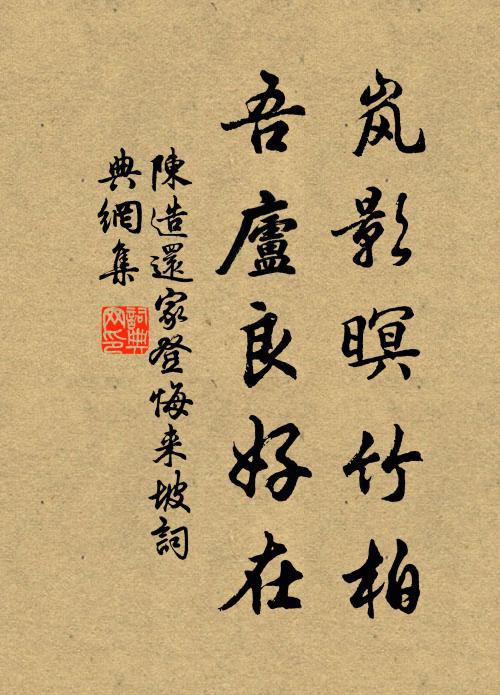 岚影暝竹柏
吾廬良好在
陳造還家登悔来坡詞
典網集
詞典
网印